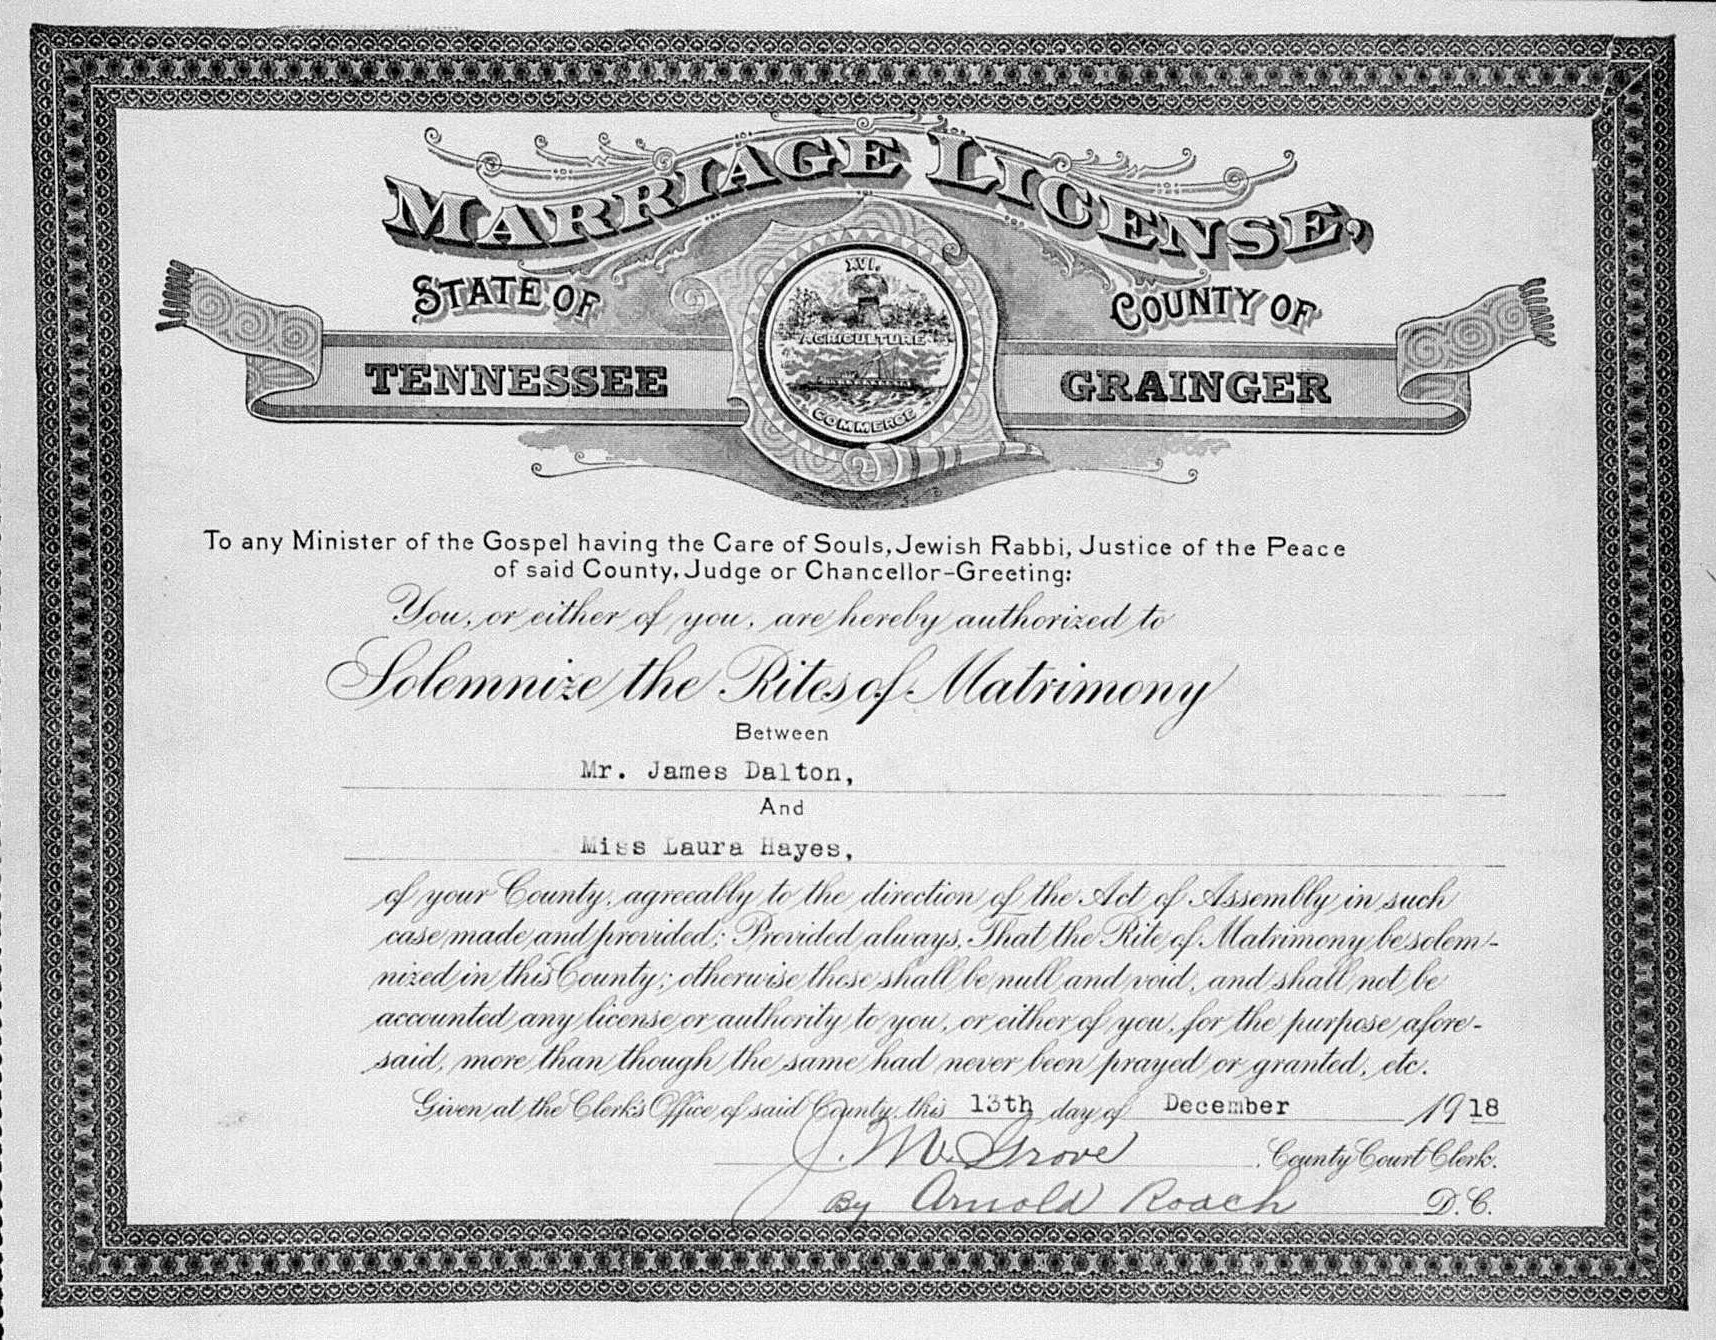 MARRIAGE LICENSE,
STATE OF
COUNTY OF
TENNESSEE
GRAINGER
XVI.
AGRICULTURE
COMMERCE
To any Minister of the Gospel having the Care of Souls, Jewish Rabbi, Justice of the Peace
of said County, Judge or Chancellor-Greeting:
You, or either of you, are hereby authorized to
Solemnize the Rites of Matrimony
Between
Mr. James Dalton,
And
Miss Laura Hayes,
of your County, agreeably to the direction of the Act of Assembly in such
case made and provided; Provided always, That the Rite of Matrimony be solem-
nized in this County; otherwise these shall be null and void, and shall not be
accounted any license or authority to you, or either of you, for the purpose afore-
said, more than though the same had never been prayed or granted, etc.
Given at the Clerk's Office of said County, this 13th day of December 1918
J. M. Grove, County Court Clerk.
By Arnold Roach D.C.